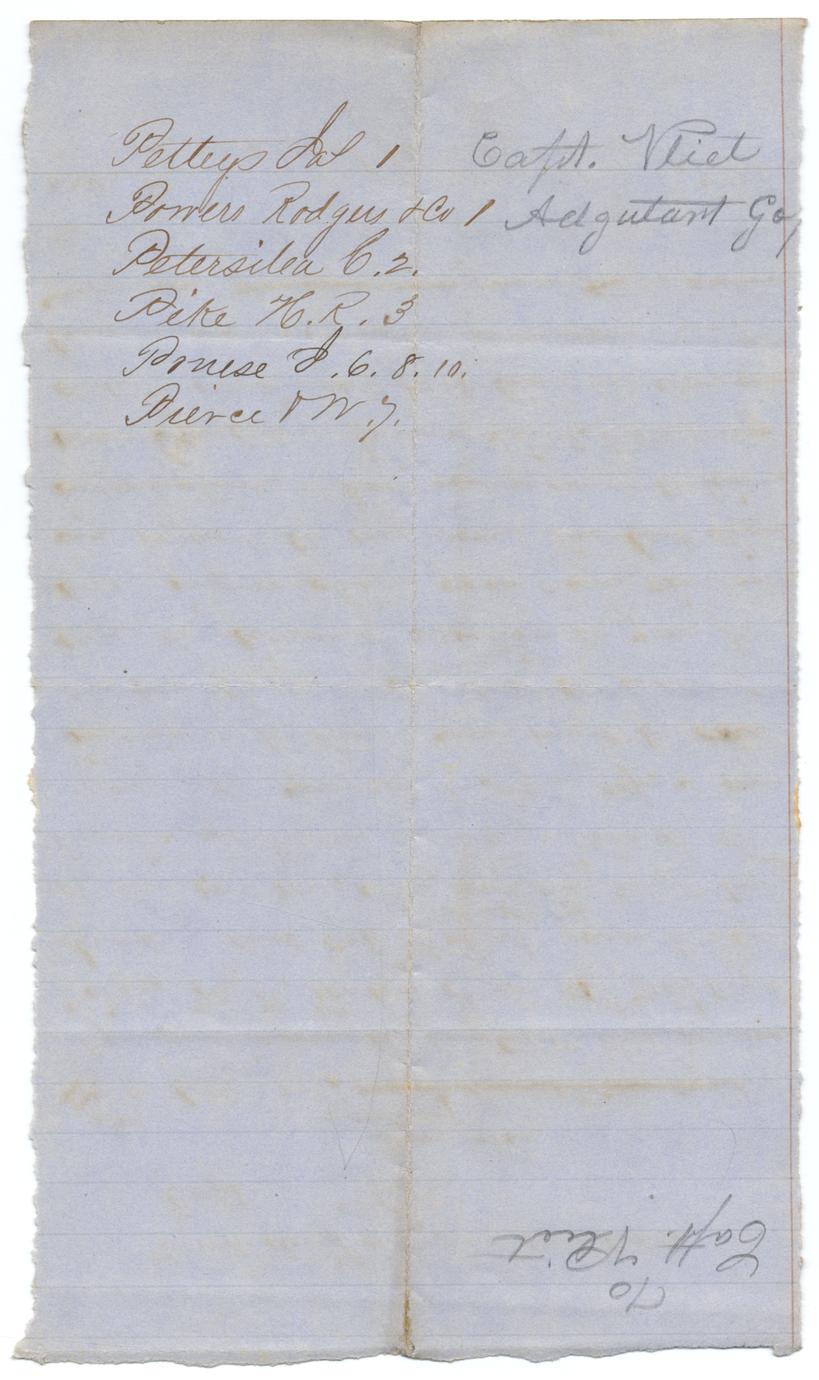 Petteys Jas 1
Capt. Vliet
Powers Rodgers & Co 1
Adgutant
Petersilea C. 2.
Pike H. R. 3
J. 6. 8. 10.
Pierce W. 7.
To
Capt. Vliet